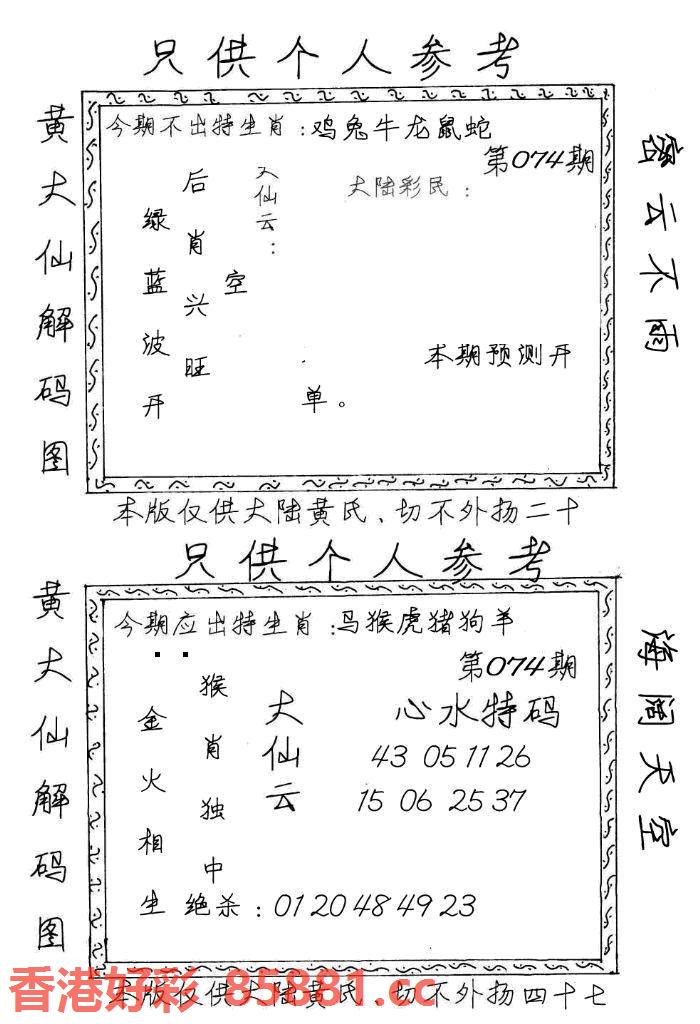 只供个人参考
黄大仙解码图
今期不出特生肖：鸡兔牛龙鼠蛇
第074期
大陆彩民：
大仙云：
后肖兴旺
绿蓝波开
空
本期预测开
单。
密云不雨
本版仅供大陆黄氏、切不外扬二十
只供个人参考
黄大仙解码图
今期应出特生肖：马猴虎猪狗羊
第074期
心水特码
43 05 11 26
15 06 25 37
大仙云
猴肖独中
金火相生
绝杀：01 20 48 49 23
海阔天空
本版仅供大陆黄氏、切不外扬四十七
香港好彩 85881.cc